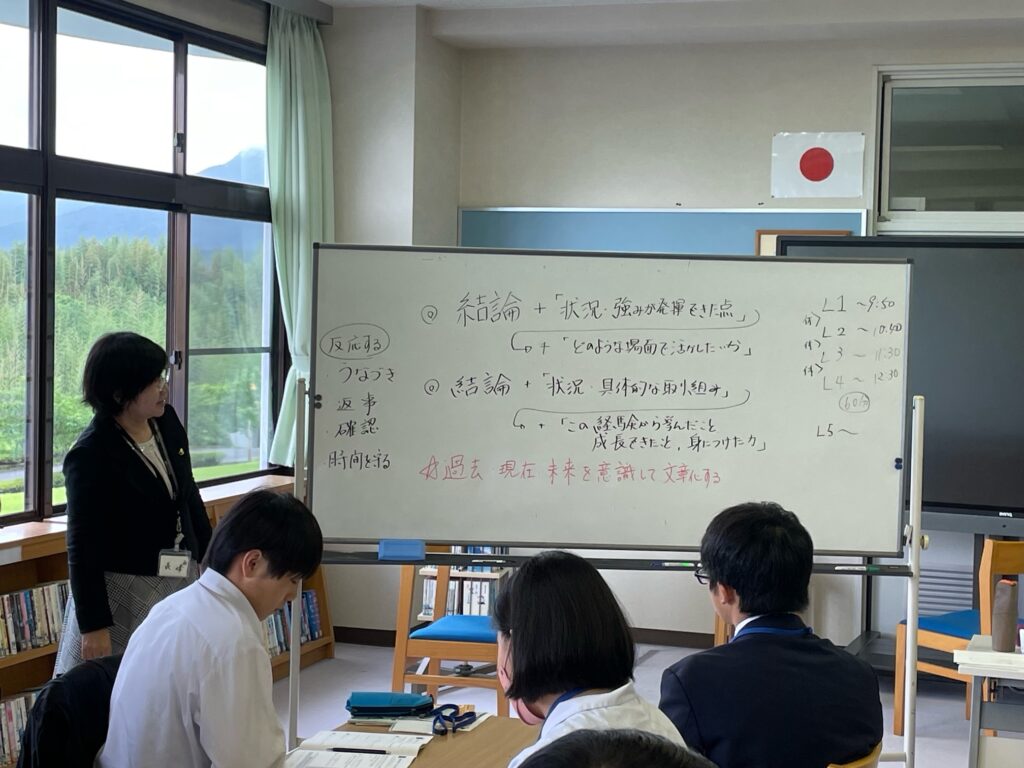 反応する
・うなづき
・返事
・確認
・時間を守る
◎ 結論 + 「状況・強みが発揮できた点」
+ 「どのような場面で活かしたいか」
◎ 結論 + 「状況・具体的な取り組み」
+ 「この経験から学んだこと
成長できたこと、身につけた力」
☆過去・現在 未来を意識して文章化する
L1 ~9:50
休>
L2 ~10:40
休>
L3 ~11:30
休>
L4 ~12:30
60分
L5~
BenQ